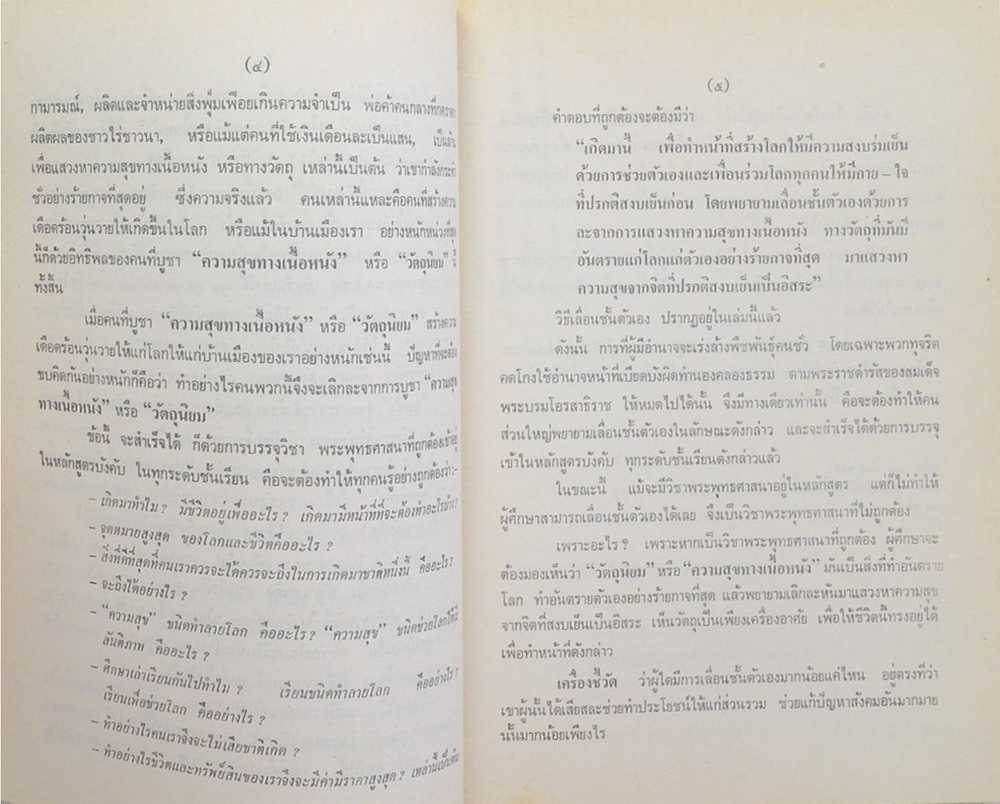 (๔)
กามารมณ์, ผลิตและจำหน่ายสิ่งฟุ่มเฟือยเกินความจำเป็น พ่อค้าคนกลางที่กดราคา
ผลิตผลของชาวไร่ชาวนา, หรือแม้แต่คนที่ใช้เงินเดือนละเป็นแสน, เป็นล้าน
เพื่อแสวงหาความสุขทางเนื้อหนัง หรือทางวัตถุ เหล่านี้เป็นต้น ว่าเขากำลังกระทำ
ชั่วอย่างร้ายกาจที่สุดอยู่ ซึ่งความจริงแล้ว คนเหล่านี้แหละคือคนที่สร้างความ
เดือดร้อนวุ่นวายให้เกิดขึ้นในโลก หรือแม้ในบ้านเมืองเรา อย่างหนักหน่วงที่สุด
นี้ก็ด้วยอิทธิพลของคนที่บูชา “ความสุขทางเนื้อหนัง” หรือ “วัตถุนิยม” นี้
ทั้งสิ้น
เมื่อคนที่บูชา “ความสุขทางเนื้อหนัง” หรือ “วัตถุนิยม” สร้างความ
เดือดร้อนวุ่นวายให้แก่โลกให้แก่บ้านเมืองของเราอย่างหนักเช่นนี้ ปัญหาที่จะต้อง
ขบคิดกันอย่างหนักก็คือว่า ทำอย่างไรคนพวกนี้จึงจะเลิกละจากการบูชา “ความสุข
ทางเนื้อหนัง” หรือ “วัตถุนิยม”
ข้อนี้ จะสำเร็จได้ ก็ด้วยการบรรจุวิชา พระพุทธศาสนาที่ถูกต้องเข้าอยู่
ในหลักสูตรบังคับ ในทุกระดับชั้นเรียน คือจะต้องทำให้ทุกคนรู้อย่างถูกต้องว่า:-
– เกิดมาทำไม? มีชีวิตอยู่เพื่ออะไร? เกิดมามีหน้าที่ที่จะต้องทำอะไรบ้าง?
– จุดหมายสูงสุด ของโลกและชีวิตคืออะไร?
– สิ่งที่ดีที่สุดที่คนเราควรจะได้ควรจะถึงในการเกิดมาชาติหนึ่งนี้ คืออะไร?
– จะถึงได้อย่างไร?
– “ความสุข” ชนิดทำลายโลก คืออะไร? “ความสุข” ชนิดช่วยโลกให้มี
สันติภาพ คืออะไร?
– ศึกษาเล่าเรียนกันไปทำไม? เรียนชนิดทำลายโลก คืออย่างไร?
เรียนเพื่อช่วยโลก คืออย่างไร?
– ทำอย่างไรคนเราจึงจะไม่เสียชาติเกิด?
– ทำอย่างไรชีวิตและทรัพย์สินของเราจึงจะมีค่ามีราคาสูงสุด? เหล่านี้เป็นต้น
(๕)
คำตอบที่ถูกต้องจะต้องมีว่า
“เกิดมานี้ เพื่อทำหน้าที่สร้างโลกให้มีความสงบร่มเย็น
ด้วยการช่วยตัวเองและเพื่อนร่วมโลกทุกคนให้มีกาย – ใจ
ที่ปรกติสงบเย็นก่อน โดยพยายามเลื่อนชั้นตัวเองด้วยการ
ละจากการแสวงหาความสุขทางเนื้อหนัง ทางวัตถุที่มันมี
อันตรายแก่โลกแก่ตัวเองอย่างร้ายกาจที่สุด มาแสวงหา
ความสุขจากจิตที่ปรกติสงบเย็นเป็นอิสระ”
วิธีเลื่อนชั้นตัวเอง ปรากฏอยู่ในเล่มนี้แล้ว
ดังนั้น การที่ผู้มีอำนาจจะเร่งล้างพืชพันธุ์คนชั่ว โดยเฉพาะพวกทุจริต
คดโกงใช้อำนาจหน้าที่เบียดบังผิดทำนองคลองธรรม ตามพระราชดำรัสของสมเด็จ
พระบรมโอรสาธิราช ให้หมดไปได้นั้น จึงมีทางเดียวเท่านั้น คือจะต้องทำให้คน
ส่วนใหญ่พยายามเลื่อนชั้นตัวเองในลักษณะดังกล่าว และจะสำเร็จได้ด้วยการบรรจุ
เข้าในหลักสูตรบังคับ ทุกระดับชั้นเรียนดังกล่าวแล้ว
ในขณะนี้ แม้จะมีวิชาพระพุทธศาสนาอยู่ในหลักสูตร แต่ก็ไม่ทำให้
ผู้ศึกษาสามารถเลื่อนชั้นตัวเองได้เลย จึงเป็นวิชาพระพุทธศาสนาที่ไม่ถูกต้อง
เพราะอะไร? เพราะหากเป็นวิชาพระพุทธศาสนาที่ถูกต้อง ผู้ศึกษาจะ
ต้องมองเห็นว่า “วัตถุนิยม” หรือ “ความสุขทางเนื้อหนัง” มันเป็นสิ่งที่ทำอันตราย
โลก ทำอันตรายตัวเองอย่างร้ายกาจที่สุด แล้วพยายามเลิกละหันมาแสวงหาความสุข
จากจิตที่สงบเย็นเป็นอิสระ เห็นวัตถุเป็นเพียงเครื่องอาศัย เพื่อให้ชีวิตนี้ทรงอยู่ได้
เพื่อทำหน้าที่ดังกล่าว
เครื่องชี้วัด ว่าผู้ใดมีการเลื่อนชั้นตัวเองมากน้อยแค่ไหน อยู่ตรงที่ว่า
เขาผู้นั้นได้เสียสละช่วยทำประโยชน์ให้แก่ส่วนรวม ช่วยแก้ปัญหาสังคมอันมากมาย
นั้นมากน้อยเพียงไร